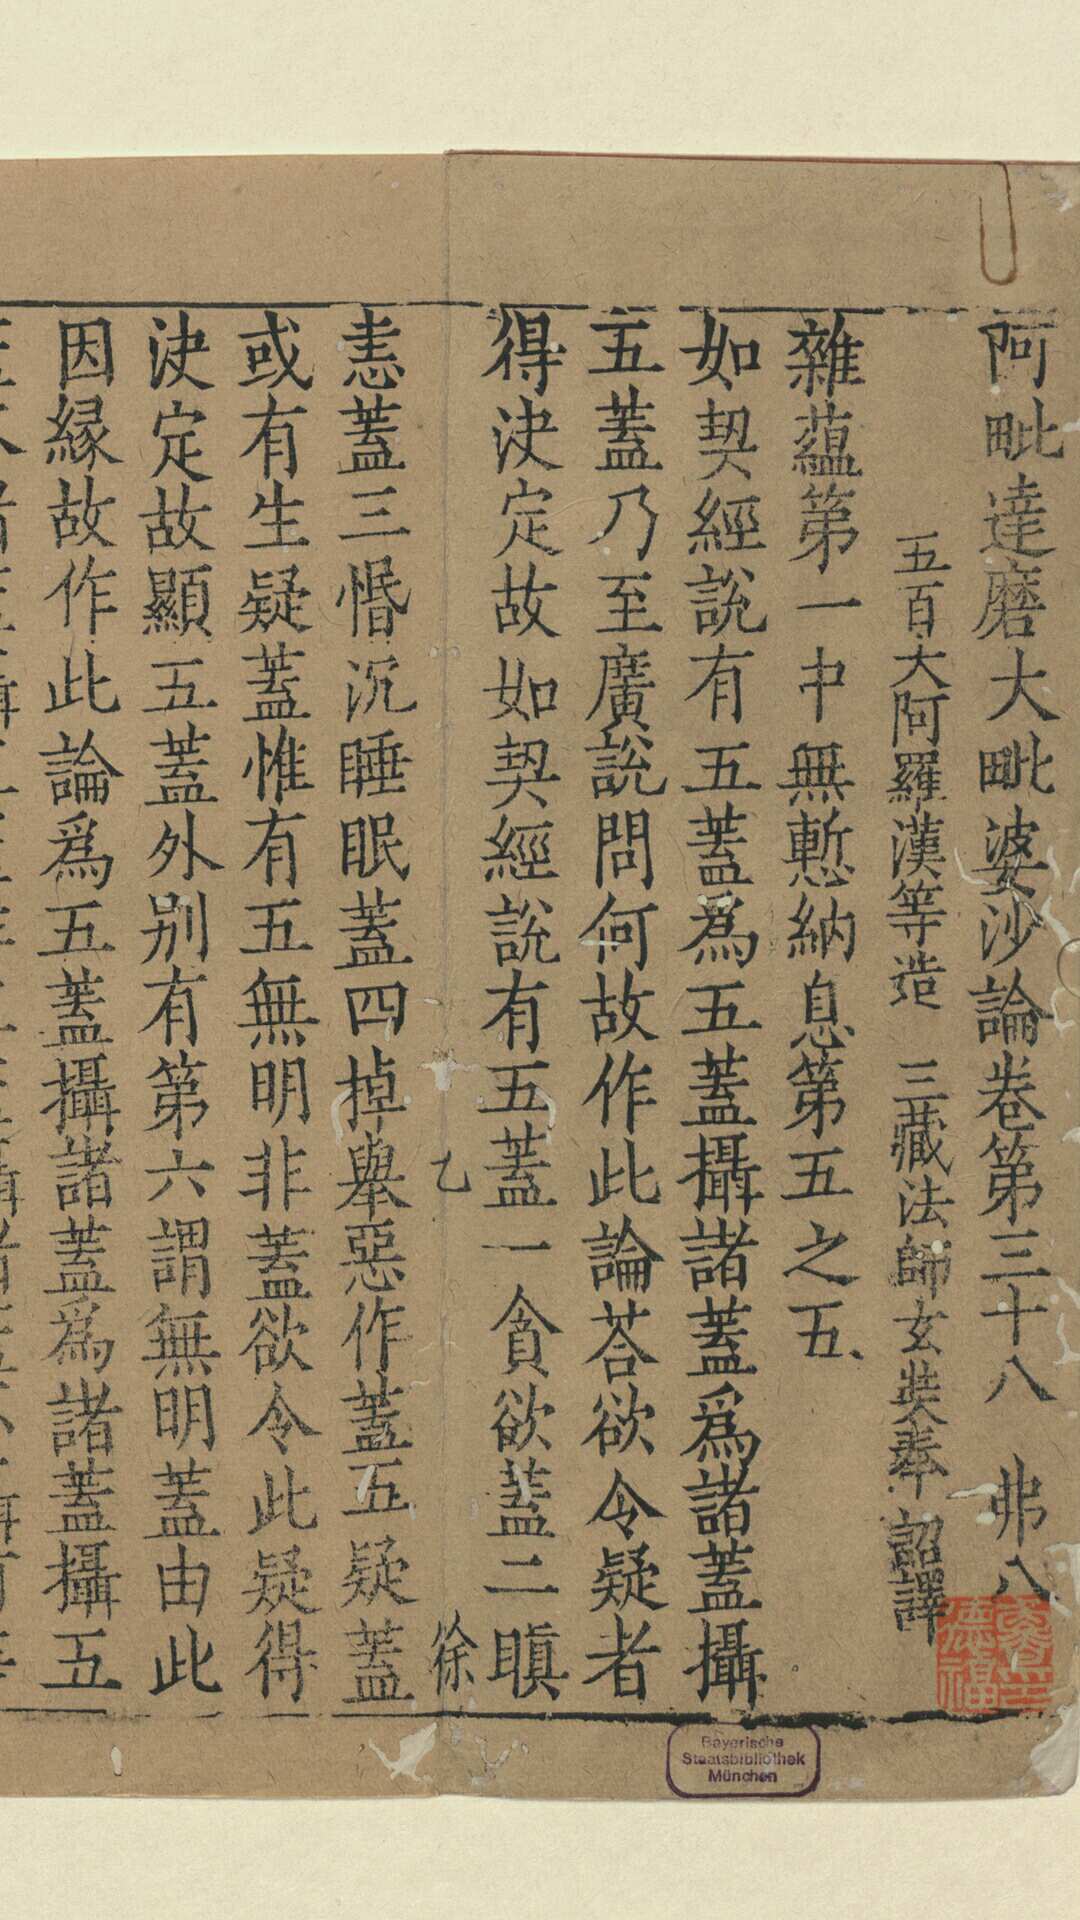 阿毗達磨大毗婆沙論卷第三十八 弗八
五百大阿羅漢等造 三藏法師玄奘奉 詔譯
雜蘊第一中無慙納息第五之五
如契經說有五蓋爲五蓋攝諸蓋爲諸蓋攝
五蓋乃至廣說問何故作此論荅欲令疑者
得決定故如契經說有五蓋一貪欲蓋二瞋
乙 徐
恚蓋三惛沉睡眠蓋四掉舉惡作蓋五疑蓋
或有生疑蓋惟有五無明非蓋欲令此疑得
決定故顯五蓋外別有第六謂無明蓋由此
因緣故作此論爲五蓋攝諸蓋爲諸蓋攝五
Bayerische
Staatsbibliothek
München